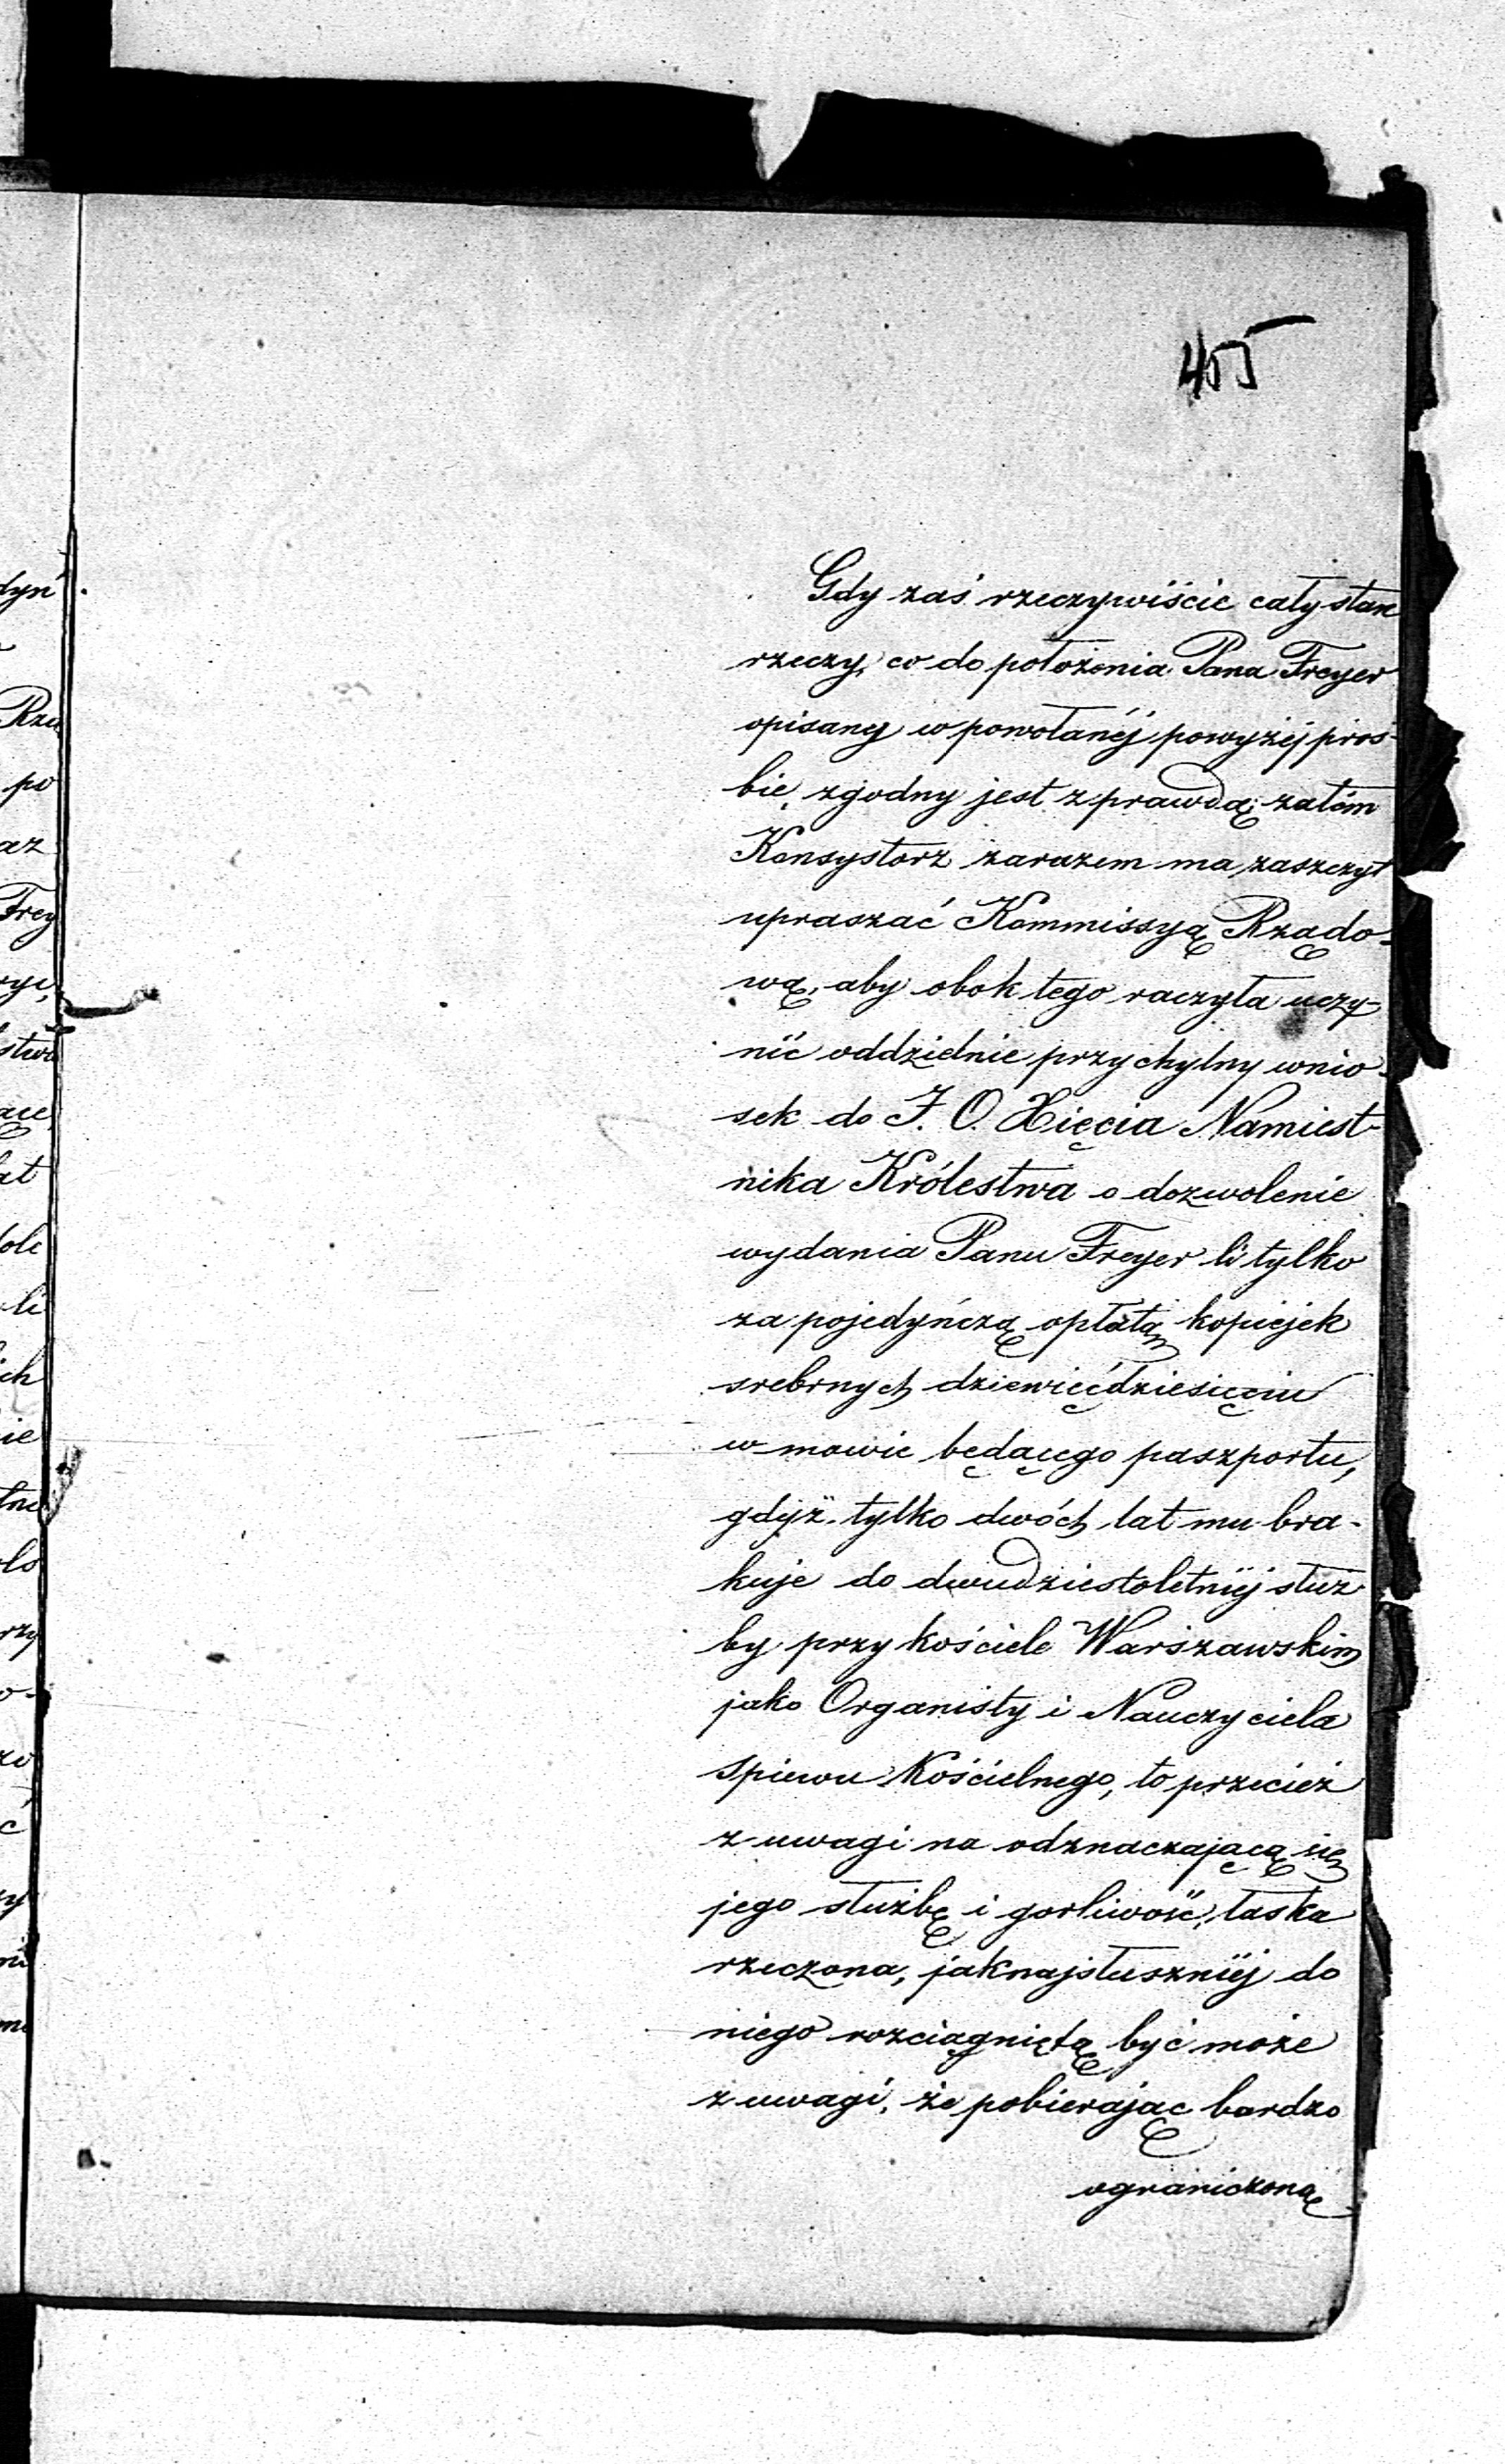 455
Gdy zaś rzeczywiście cały stan
rzeczy, co do położenia Pana Freyer
opisany w powołanéj powyżéj proś-
bie, zgodny jest z prawdą; zatém
Konsystorz zarazem ma zaszczyt
upraszać Kommissyą Rządo-
wą, aby obok tego raczyła uczy-
nić oddzielnie przychylny wnio-
sek do J. O. Xięcia Namiest-
nika Królestwa o dozwolenie
wydania Panu Freyer li tylko
za pojedyńczą opłatą kopiejek
srebrnych dziewięćdziesięciu
w mowie będącego paszportu,
gdyż tylko dwóch lat mu bra-
kuje do dwudziestoletniéj służ-
by przy kościele Warszawskim
jako Organisty i Nauczyciela
spiewu Kościelnego, to przecież
z uwagi na odznaczającą się
jego służbę i gorliwość, łaska
rzeczona, jaknajsłuszniéj do
niego rozciągniętą być może
z uwagi, że pobierając bardzo
ograniczoną